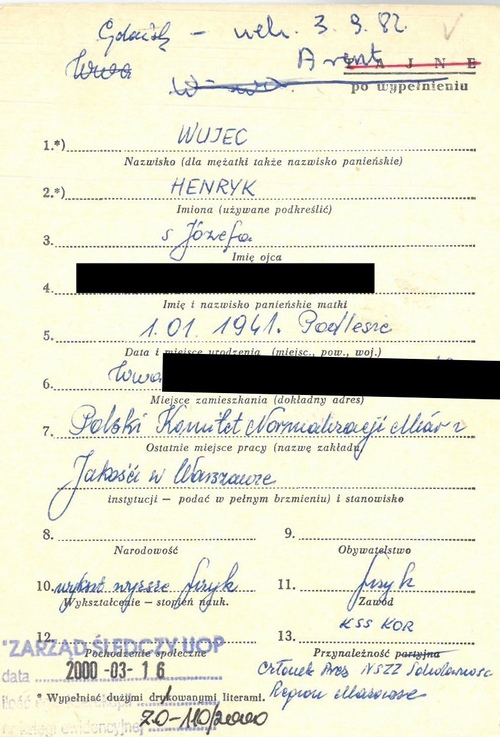 Gdańsk - web. 3.9.82.
Wwa Arent
T A J N E
po wypełnieniu
1.*) WUJEC
Nazwisko (dla mężatki także nazwisko panieńskie)
2.*) HENRYK
Imiona (używane podkreślić)
3. s Józefa
Imię ojca
4.
Imię i nazwisko panieńskie matki
5. 1.01.1941. Podlesie
Data i miejsce urodzenia (miejsc., pow., woj.)
6. Wwa
Miejsce zamieszkania (dokładny adres)
7. Polski Komitet Normalizacji Miar i
Ostatnie miejsce pracy (nazwę zakładu
Jakości w Warszawie
instytucji — podać w pełnym brzmieniu) i stanowisko
8. 9.
Narodowość Obywatelstwo
10. wykszt wyższe fizyk 11. fizyk
Wykształcenie — stopień nauk. Zawód
12. 13. KSS KOR
Pochodzenie społeczne Przynależność partyjna
Członek Prez NSZZ Solidarność
Region Mazowsze
ZARZĄD ŚLEDCZY UOP
data 2000-03-16
* Wypełniać dużymi drukowanymi literami.
ewidencyjnej ZO-110/2000